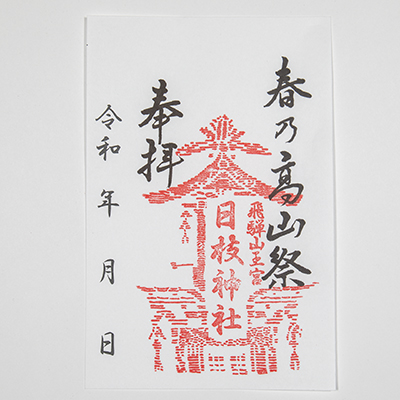 春乃高山祭
飛騨山王宮
日枝神社
奉拝
令和 年 月 日